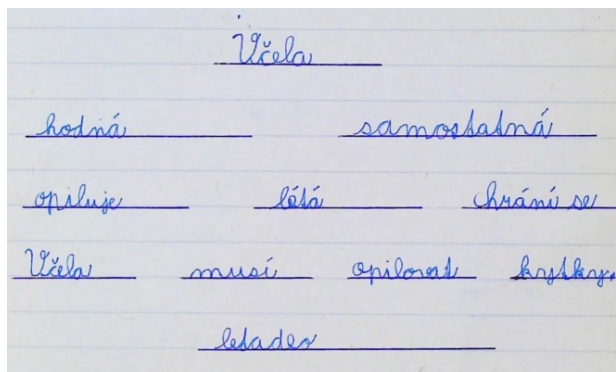 Včela
hodná samostatná
opiluje létá chrání se
Včela musí opilovat kytky.
letadlo